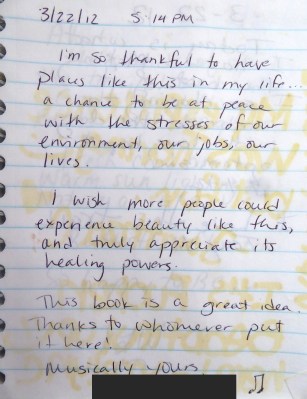 3/22/12 5:14 PM
I'm so thankful to have
places like this in my life...
a chance to be at peace
with the stresses of our
environment, our jobs, our
lives.
I wish more people could
experience beauty like this,
and truly appreciate its
healing powers.
This book is a great idea.
Thanks to whomever put
it here!
Musically yours